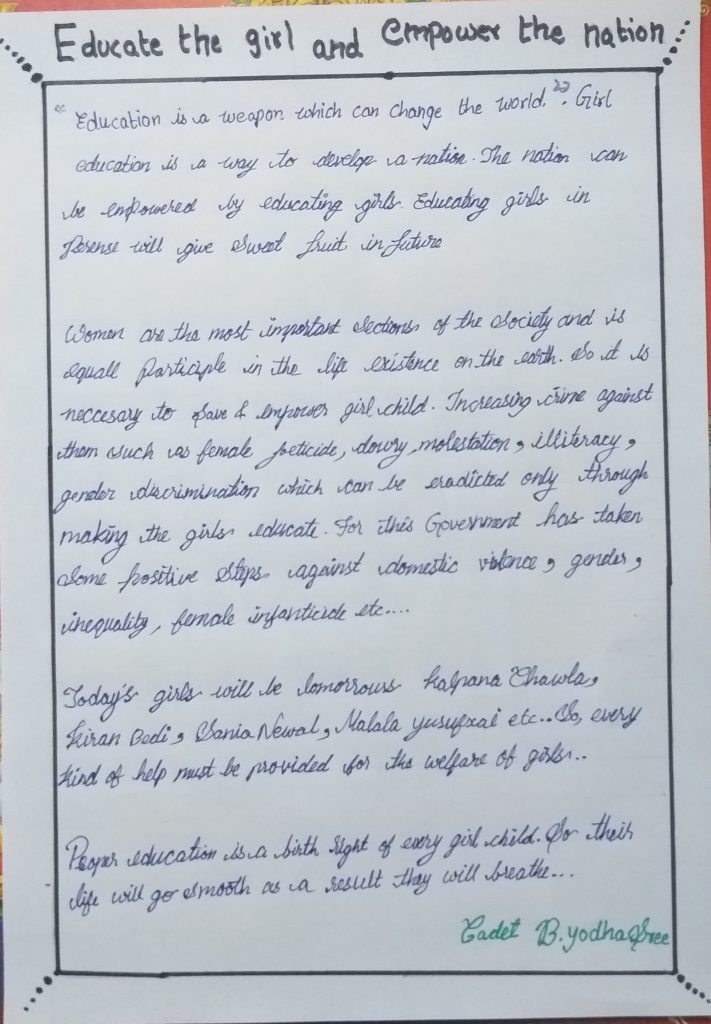 Educate the girl and empower the nation
" Education is a weapon which can change the world.". Girl
education is a way to develop a nation. The nation can
be empowered by educating girls. Educating girls in
Perense will give sweet fruit in future
Women are the most important sections of the society and is
equall Participle in the life existence on the earth. So it is
neccesary to save & empower girl child. Increasing crime against
them such as female foeticide, dowry, molestation, illiteracy,
gender discrimination which can be eradicted only through
making the girls educate. For this Government has taken
some positive steps against domestic violence, gender,
inequality, female infanticide etc....
Today's girls will be tomorrows kalpana Chawla,
Kiran Bedi, Sania Newal, Malala yusufzai etc.. So, every
kind of help must be provided for the welfare of girls..
Proper education is a birth right of every girl child. So their
life will go smooth as a result they will breathe...
Cadet B.yodhaSree